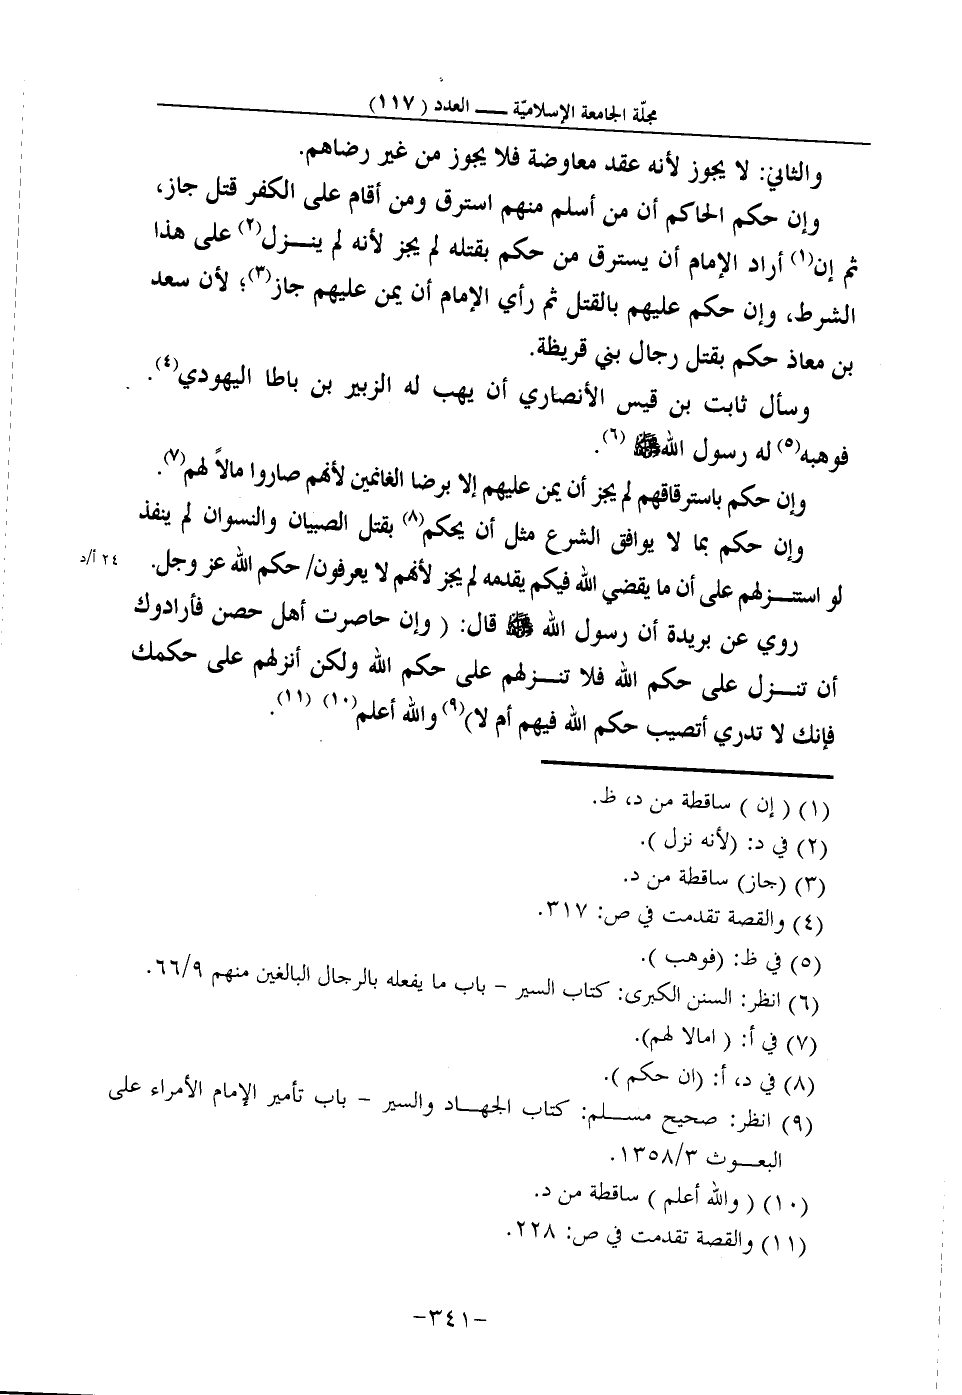 مجلّة الجامعة الإسلاميّة ـــــ العدد (١١٧)
والثاني: لا يجوز لأنه عقد معاوضة فلا يجوز من غير رضاهم.
وإن حكم الحاكم أن من أسلم منهم استرق ومن أقام على الكفر قتل جاز،
ثم إن(١) أراد الإمام أن يسترق من حكم بقتله لم يجز لأنه لم ينـــزل(٢) على هذا
الشرط، وإن حكم عليهم بالقتل ثم رأي الإمام أن يمن عليهم جاز(٣)؛ لأن سعد
بن معاذ حكم بقتل رجال بني قريظة.
وسأل ثابت بن قيس الأنصاري أن يهب له الزبير بن باطا اليهودي(٤).
فوهبه(٥) له رسول الله ﷺ (٦).
وإن حكم باسترقاقهم لم يجز أن يمن عليهم إلا برضا الغانمين لأنهم صاروا مالاً لهم(٧).
وإن حكم بما لا يوافق الشرع مثل أن يحكم(٨) بقتل الصبيان والنسوان لم ينفذ
لو استنـــزلهم على أن ما يقضي الله فيكم يقدمه لم يجز لأنهم لا يعرفون/ حكم الله عز وجل. ٢٤ أ/د
روي عن بريدة أن رسول الله ﷺ قال: ( وإن حاصرت أهل حصن فأرادوك
أن تنـــزل على حكم الله فلا تنـــزلهم على حكم الله ولكن أنزلهم على حكمك
فإنك لا تدري أتصيب حكم الله فيهم أم لا)(٩) والله أعلم(١٠) (١١).
(١) ( إن ) ساقطة من د، ظ.
(٢) في د: (لأنه نزل ).
(٣) (جاز) ساقطة من د.
(٤) والقصة تقدمت في ص: ٣١٧.
(٥) في ظ: (فوهب ).
(٦) انظر: السنن الكبرى: كتاب السير – باب ما يفعله بالرجال البالغين منهم ٦٦/٩.
(٧) في أ: ( امالا لهم).
(٨) في د، أ: (ان حكم ).
(٩) انظر: صحيح مســلم: كتاب الجهــاد والسير – باب تأمير الإمام الأمراء على
البعـــوث ١٣٥٨/٣.
(١٠) ( والله أعلم ) ساقطة من د.
(١١) والقصة تقدمت في ص: ٢٢٨.
-٣٤١-